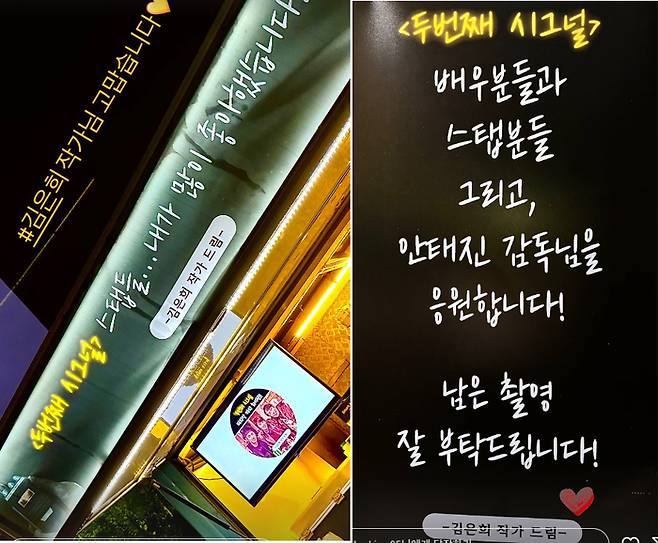 #김은희 작가님 고맙습니다
<두번째 시그널> 스탭들...내가 많이 좋아했습니다!
-김은희 작가 드림-
<두번째 시그널>
배우분들과
스탭분들
그리고,
안태진 감독님을
응원합니다!
남은 촬영
잘 부탁드립니다!
-김은희 작가 드림-